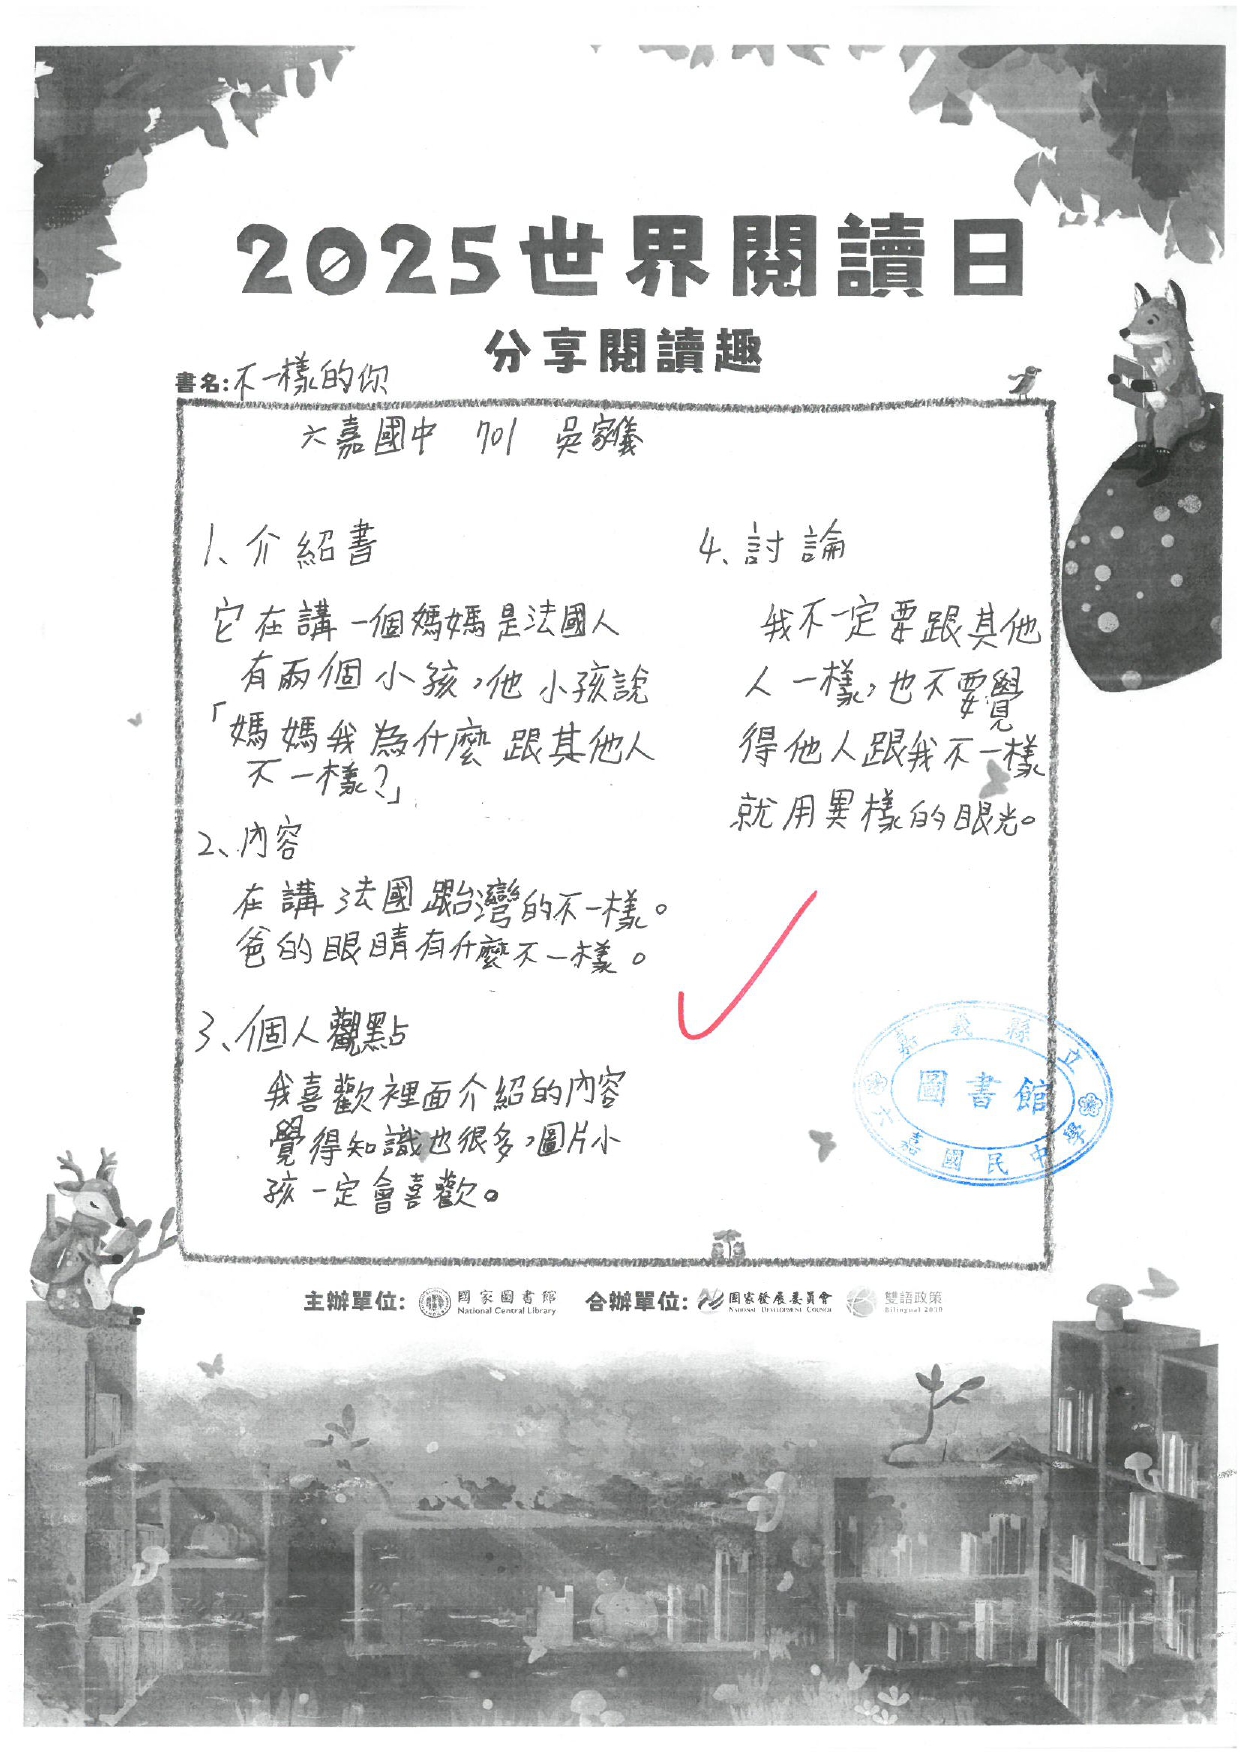 2025世界閱讀日
分享閱讀趣
書名:不一樣的你
六嘉國中 701 吳家儀
1、介紹書
它在講一個媽媽是法國人
有兩個小孩,他小孩說
「媽媽我為什麼跟其他人
不一樣?」
2、內容
在講法國跟台灣的不一樣。
爸的眼睛有什麼不一樣。
3、個人觀點
我喜歡裡面介紹的內容
覺得知識也很多,圖片小
孩一定會喜歡。
4、討論
我不一定要跟其他
人一樣,也不要覺
得他人跟我不一樣
就用異樣的眼光。
嘉義縣立
圖書館
六嘉國民中學
主辦單位: 國家圖書館 National Central Library 合辦單位: 國家發展委員會 National Development Council 雙語政策 Bilingual 2030